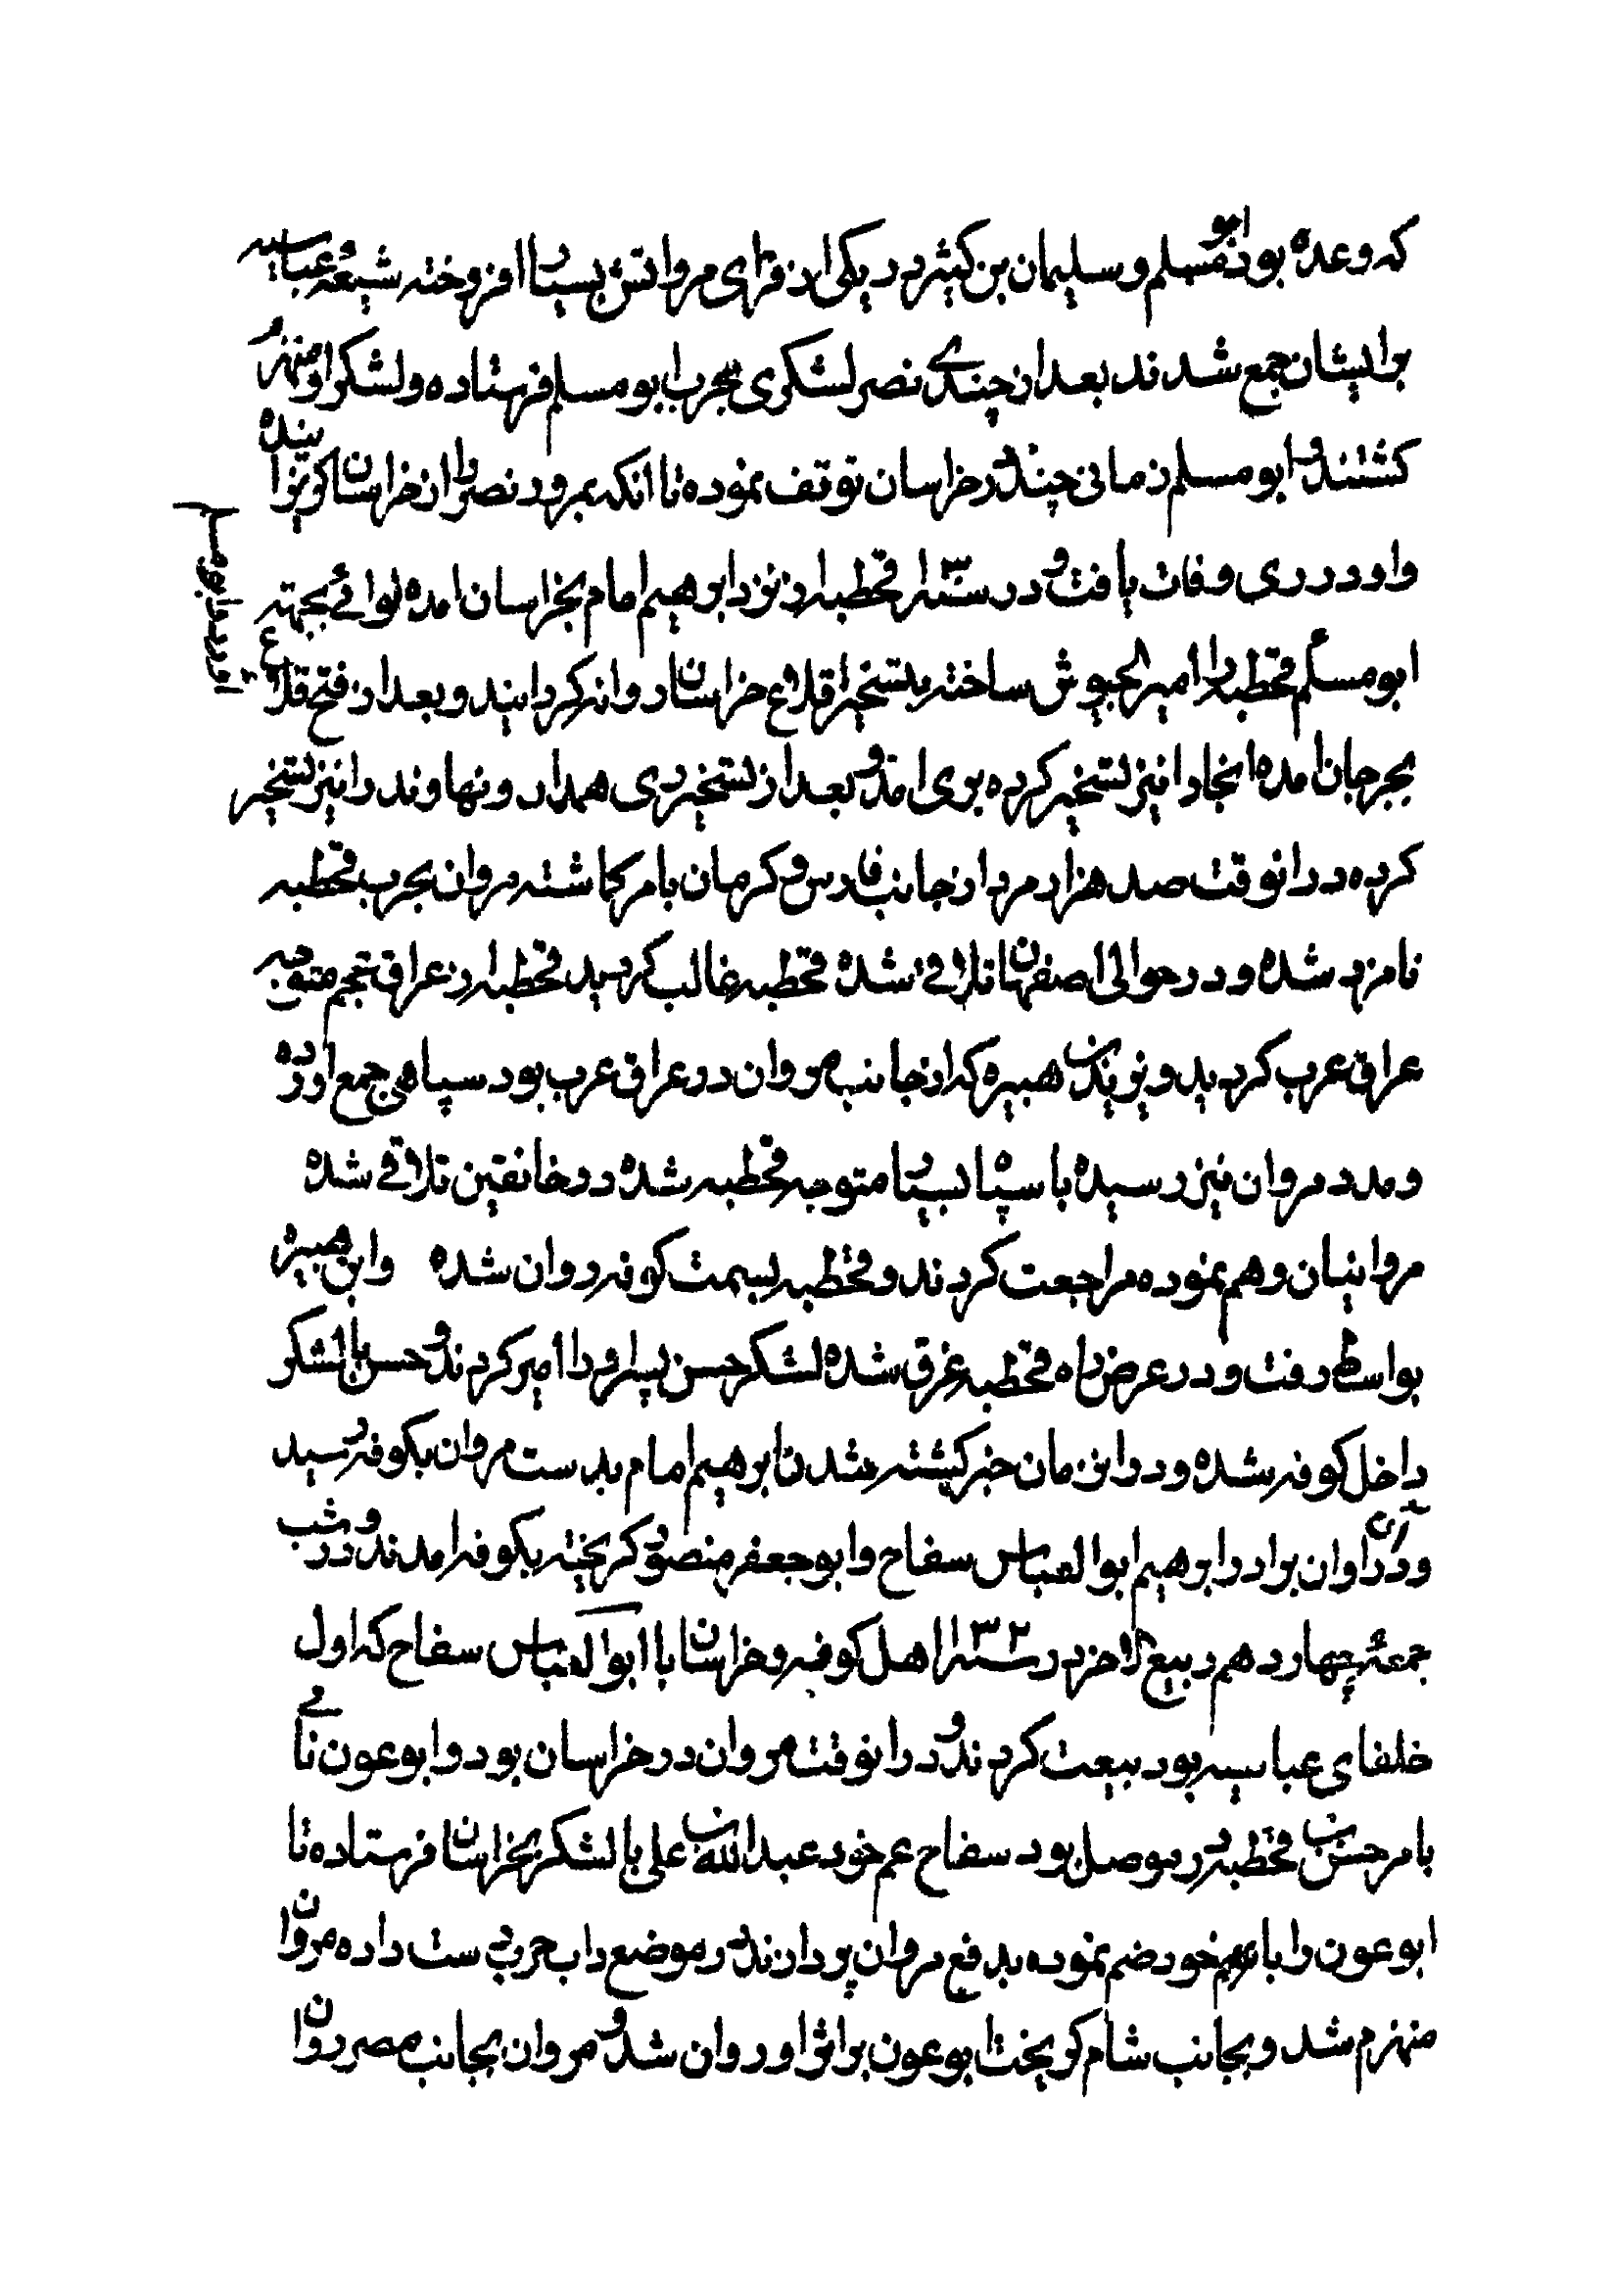 که وعده بود ابو مسلم و سلیمان بن کثیر در یکی از قرای مرو آتش بسیار افروخته شیعهٔ عباسیه
بر ایشان جمع شدند بعد از چندی نصر لشکری بحرب ابو مسلم فرستاده و لشکر او منهزم
کشتند و ابو مسلم زمانی چند در خراسان توقف نموده تا انکه بمرو رد نصر از خراسان کریزانیده
و او در ری وفات یافت و در سنه ۱۳۰ قحطبه از نزد ابرهیم امام بخراسان امده لوائی بجهته
ابو مسلم آورد و ابو مسلم قحطبه را امیر الجیوش ساخته بتسخیر قلاع خراسان روانه کردانید و بعد از فتح قلاع
بجرجان امده انجا را نیز تسخیر کرده بری امد و بعد از تسخیر ری همدان و نهاوند را نیز تسخیر
کرده در انوقت صد هزار مرد از جانب فارس و کرمان بامر کماشته مروان بحرب قحطبه
نامزد شده و در حوالی اصفهان تلاقی شده قحطبه غالب کردید قحطبه از عراق عجم متوجه
عراق عرب کردید و یزید بن هبیره که از جانب مروان در عراق عرب بود سپاهی جمع اورده
و مدد مروان نیز رسیده با سپاه بسیار متوجه قحطبه شده در خانقین تلاقی شده
مروانیان وهم نموده مراجعت کردند و قحطبه بسمت کوفه روان شده وابن هبیره
بواسط رفت و در عرض راه قحطبه غرق شده لشکر حسن پسر او را امیر کردند و حسن با لشکر
داخل کوفه شده و در ان زمان خبر کشته شدن ابرهیم امام بدست مروان بکوفه رسید
و در آن اوان برادر ابرهیم ابو العباس سفاح و ابو جعفر منصور کریخته بکوفه امدند و در شب
جمعهٔ چهاردهم ربیع الاخر در سنه ۱۳۲ اهل کوفه و خراسان با ابو العباس سفاح که اول
خلفای عباسیه بود بیعت کردند و در انوقت مروان در خراسان بود و ابو عون نامی
بامر حسن بن قحطبه در موصل بود سفاح عم خود عبدالله بن علی با لشکر بخراسان فرستاده تا
ابو عون را با خود ضم نموده بدفع مروان پردازند در موضع داب حرب دست داده مروان
منهزم شد و بجانب شام کریخت ابو عون بر اثر او روان شد و مروان بجانب مصر روان